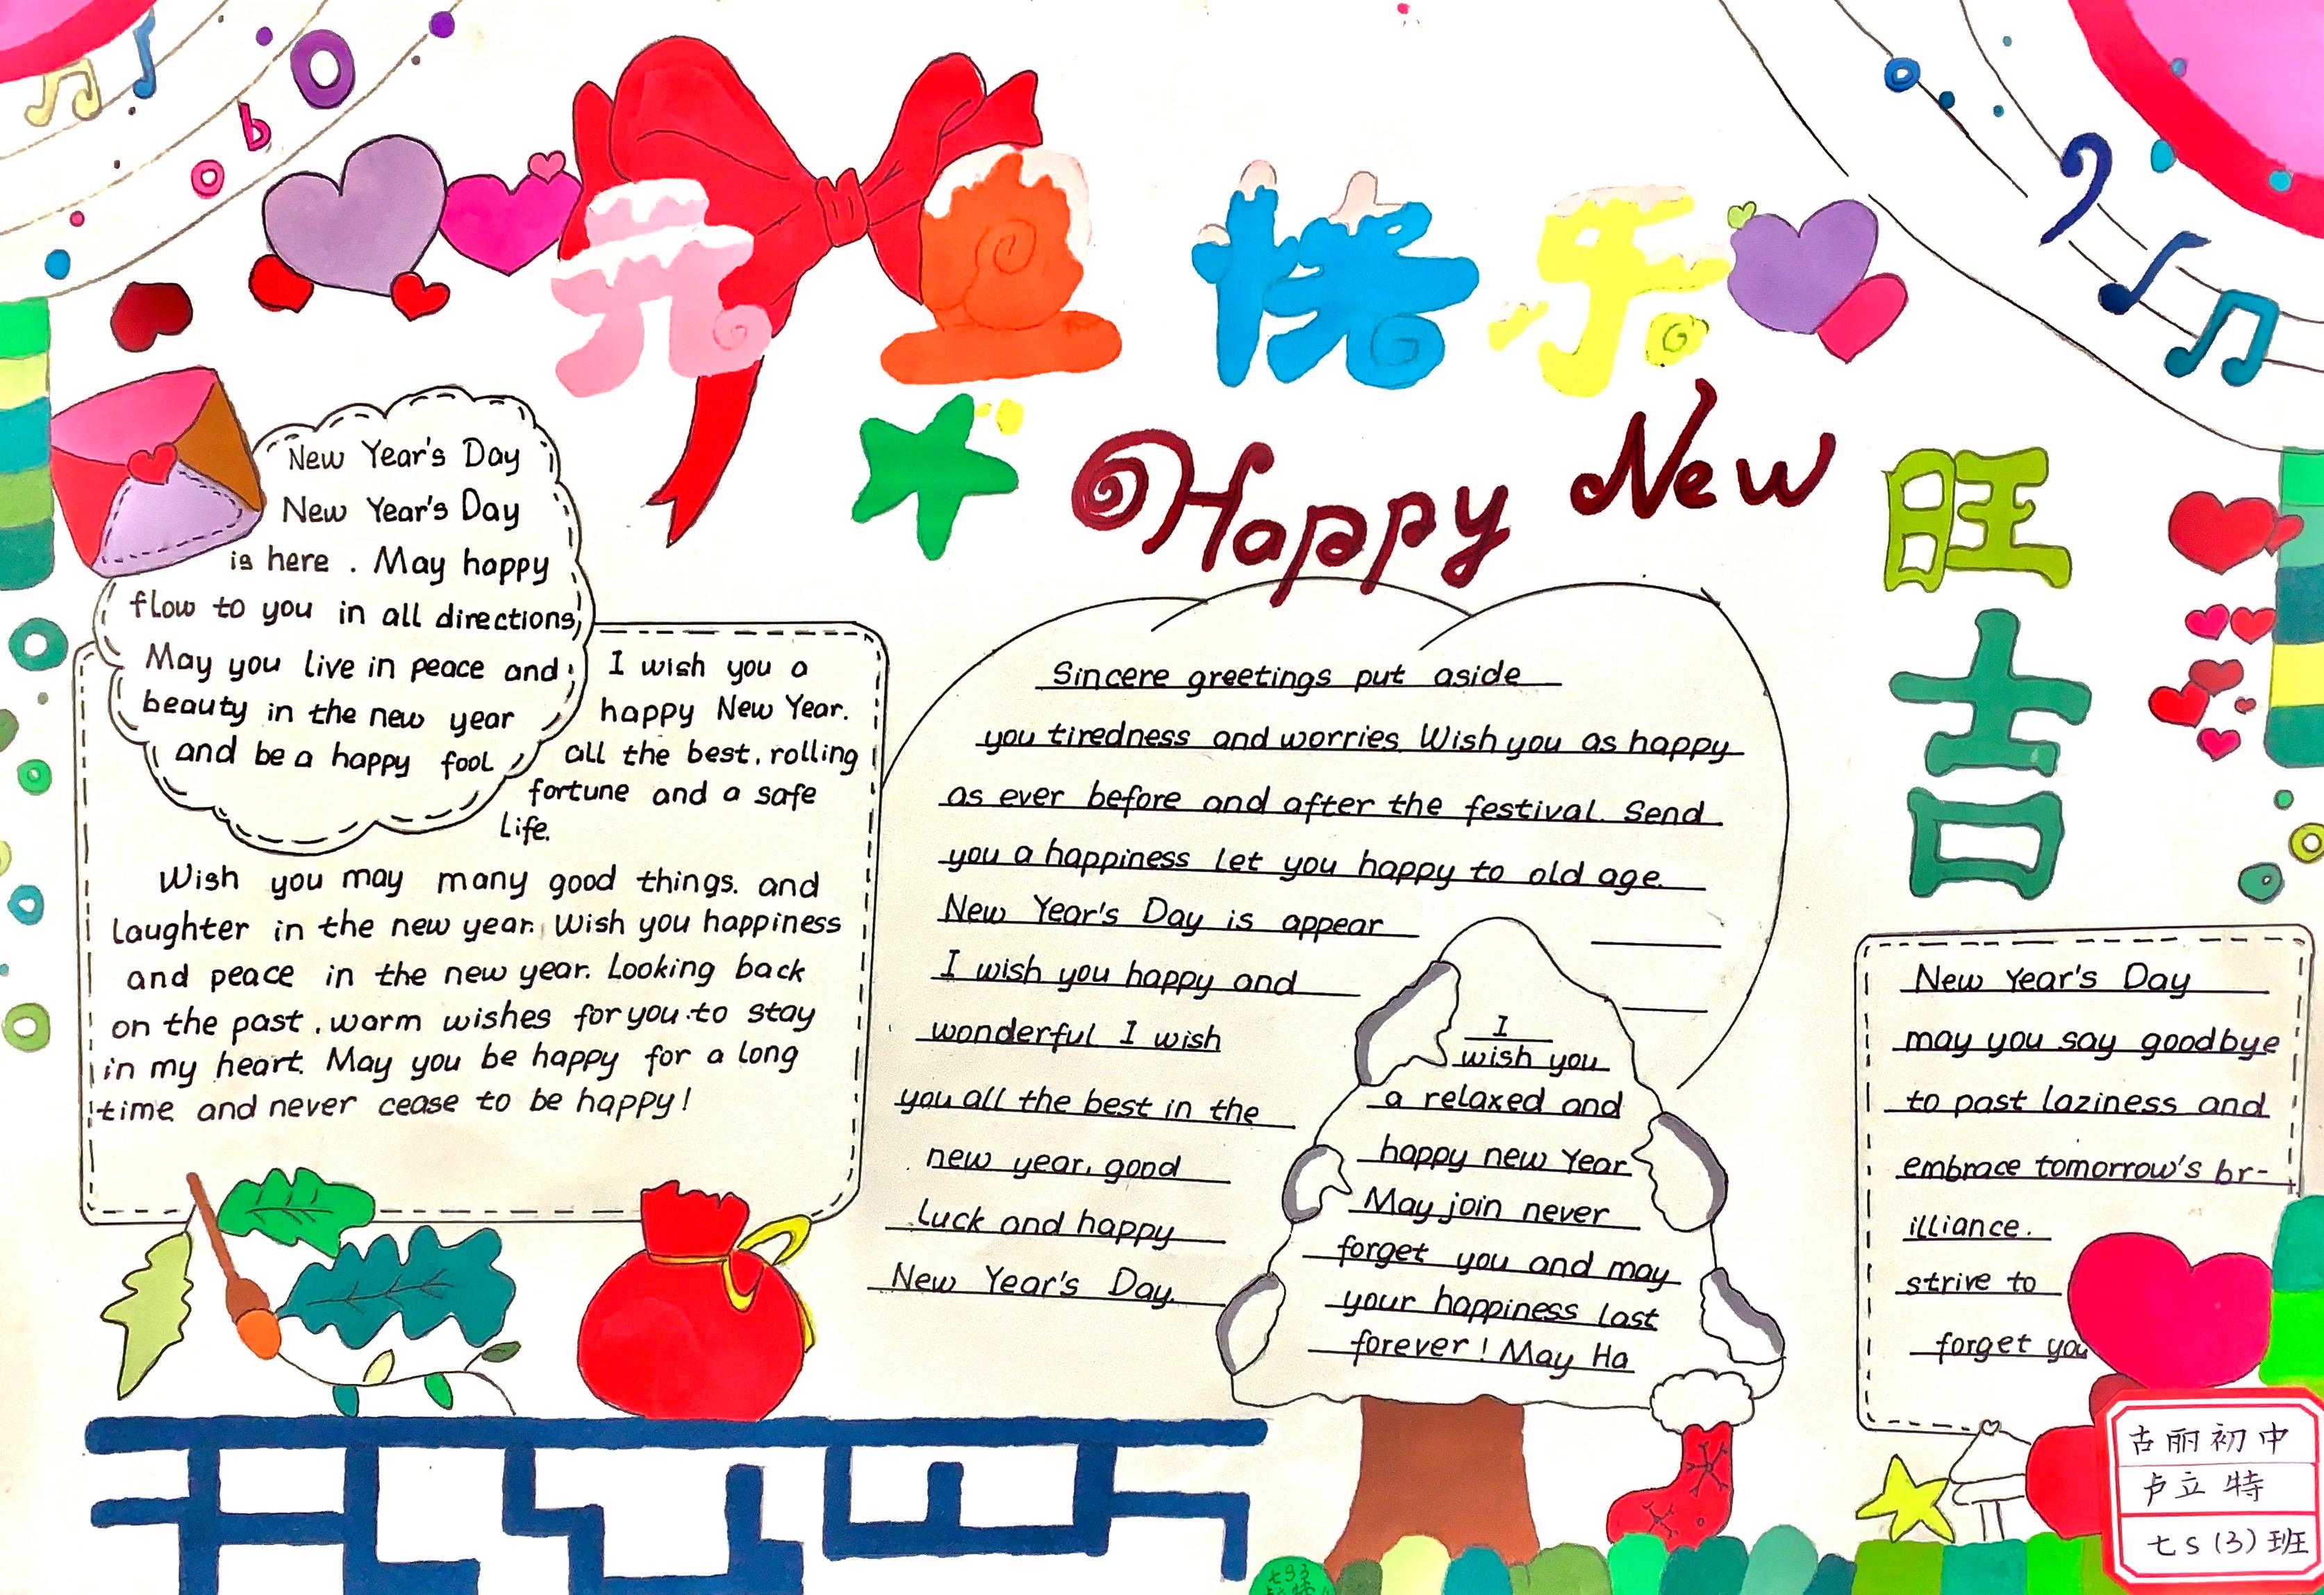 元旦快乐
Happy New
旺
吉
New Year's Day
New Year's Day
is here . May happy
flow to you in all directions,
May you live in peace and
beauty in the new year
and be a happy fool
I wish you a
happy New Year.
all the best, rolling
fortune and a safe
life.
Wish you may many good things. and
laughter in the new year. Wish you happiness
and peace in the new year. Looking back
on the past , warm wishes for you to stay
in my heart. May you be happy for a long
time and never cease to be happy!
Sincere greetings put aside
you tiredness and worries. Wish you as happy
as ever before and after the festival. Send
you a happiness let you happy to old age.
New Year's Day is appear
I wish you happy and
wonderful I wish
you all the best in the
new year, good
luck and happy
New Year's Day.
I
wish you
a relaxed and
happy new Year
May join never
forget you and may
your happiness last
forever! May Ha
New Year's Day
may you say goodbye
to past laziness and
embrace tomorrow's br-
illiance.
strive to
forget you
古丽初中
卢立特
七S(3)班